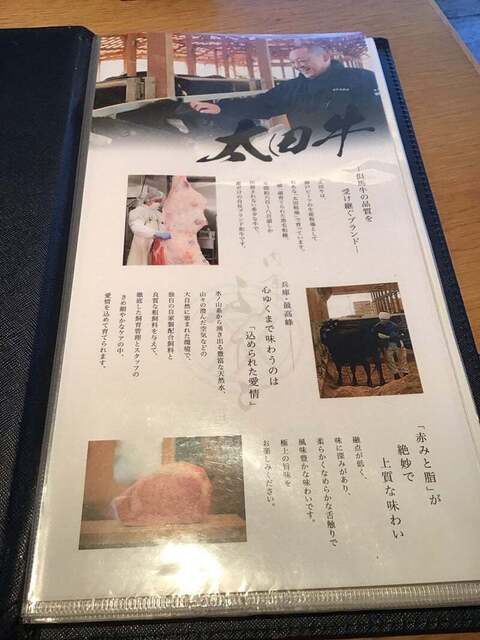 太田牛
―但馬牛の品質を
受け継ぐブランド―
兵庫・最高峰
心ゆくまで味わうのは
「込められた愛情」
氷ノ山系から湧き出る豊富な天然水、
山々の澄んだ空気などの
大自然に恵まれた環境で、
独自の自家製配合飼料と
良質な粗飼料を与えて、
徹底した飼育管理とスタッフの
きめ細やかなケアの中、
愛情を込めて育てられます。
「赤みと脂」が
絶妙で
上質な味わい
融点が低く、
味に深みがあり、
柔らかくなめらかな舌触りで
風味豊かな味わいです。
極上の旨味を
お楽しみください。